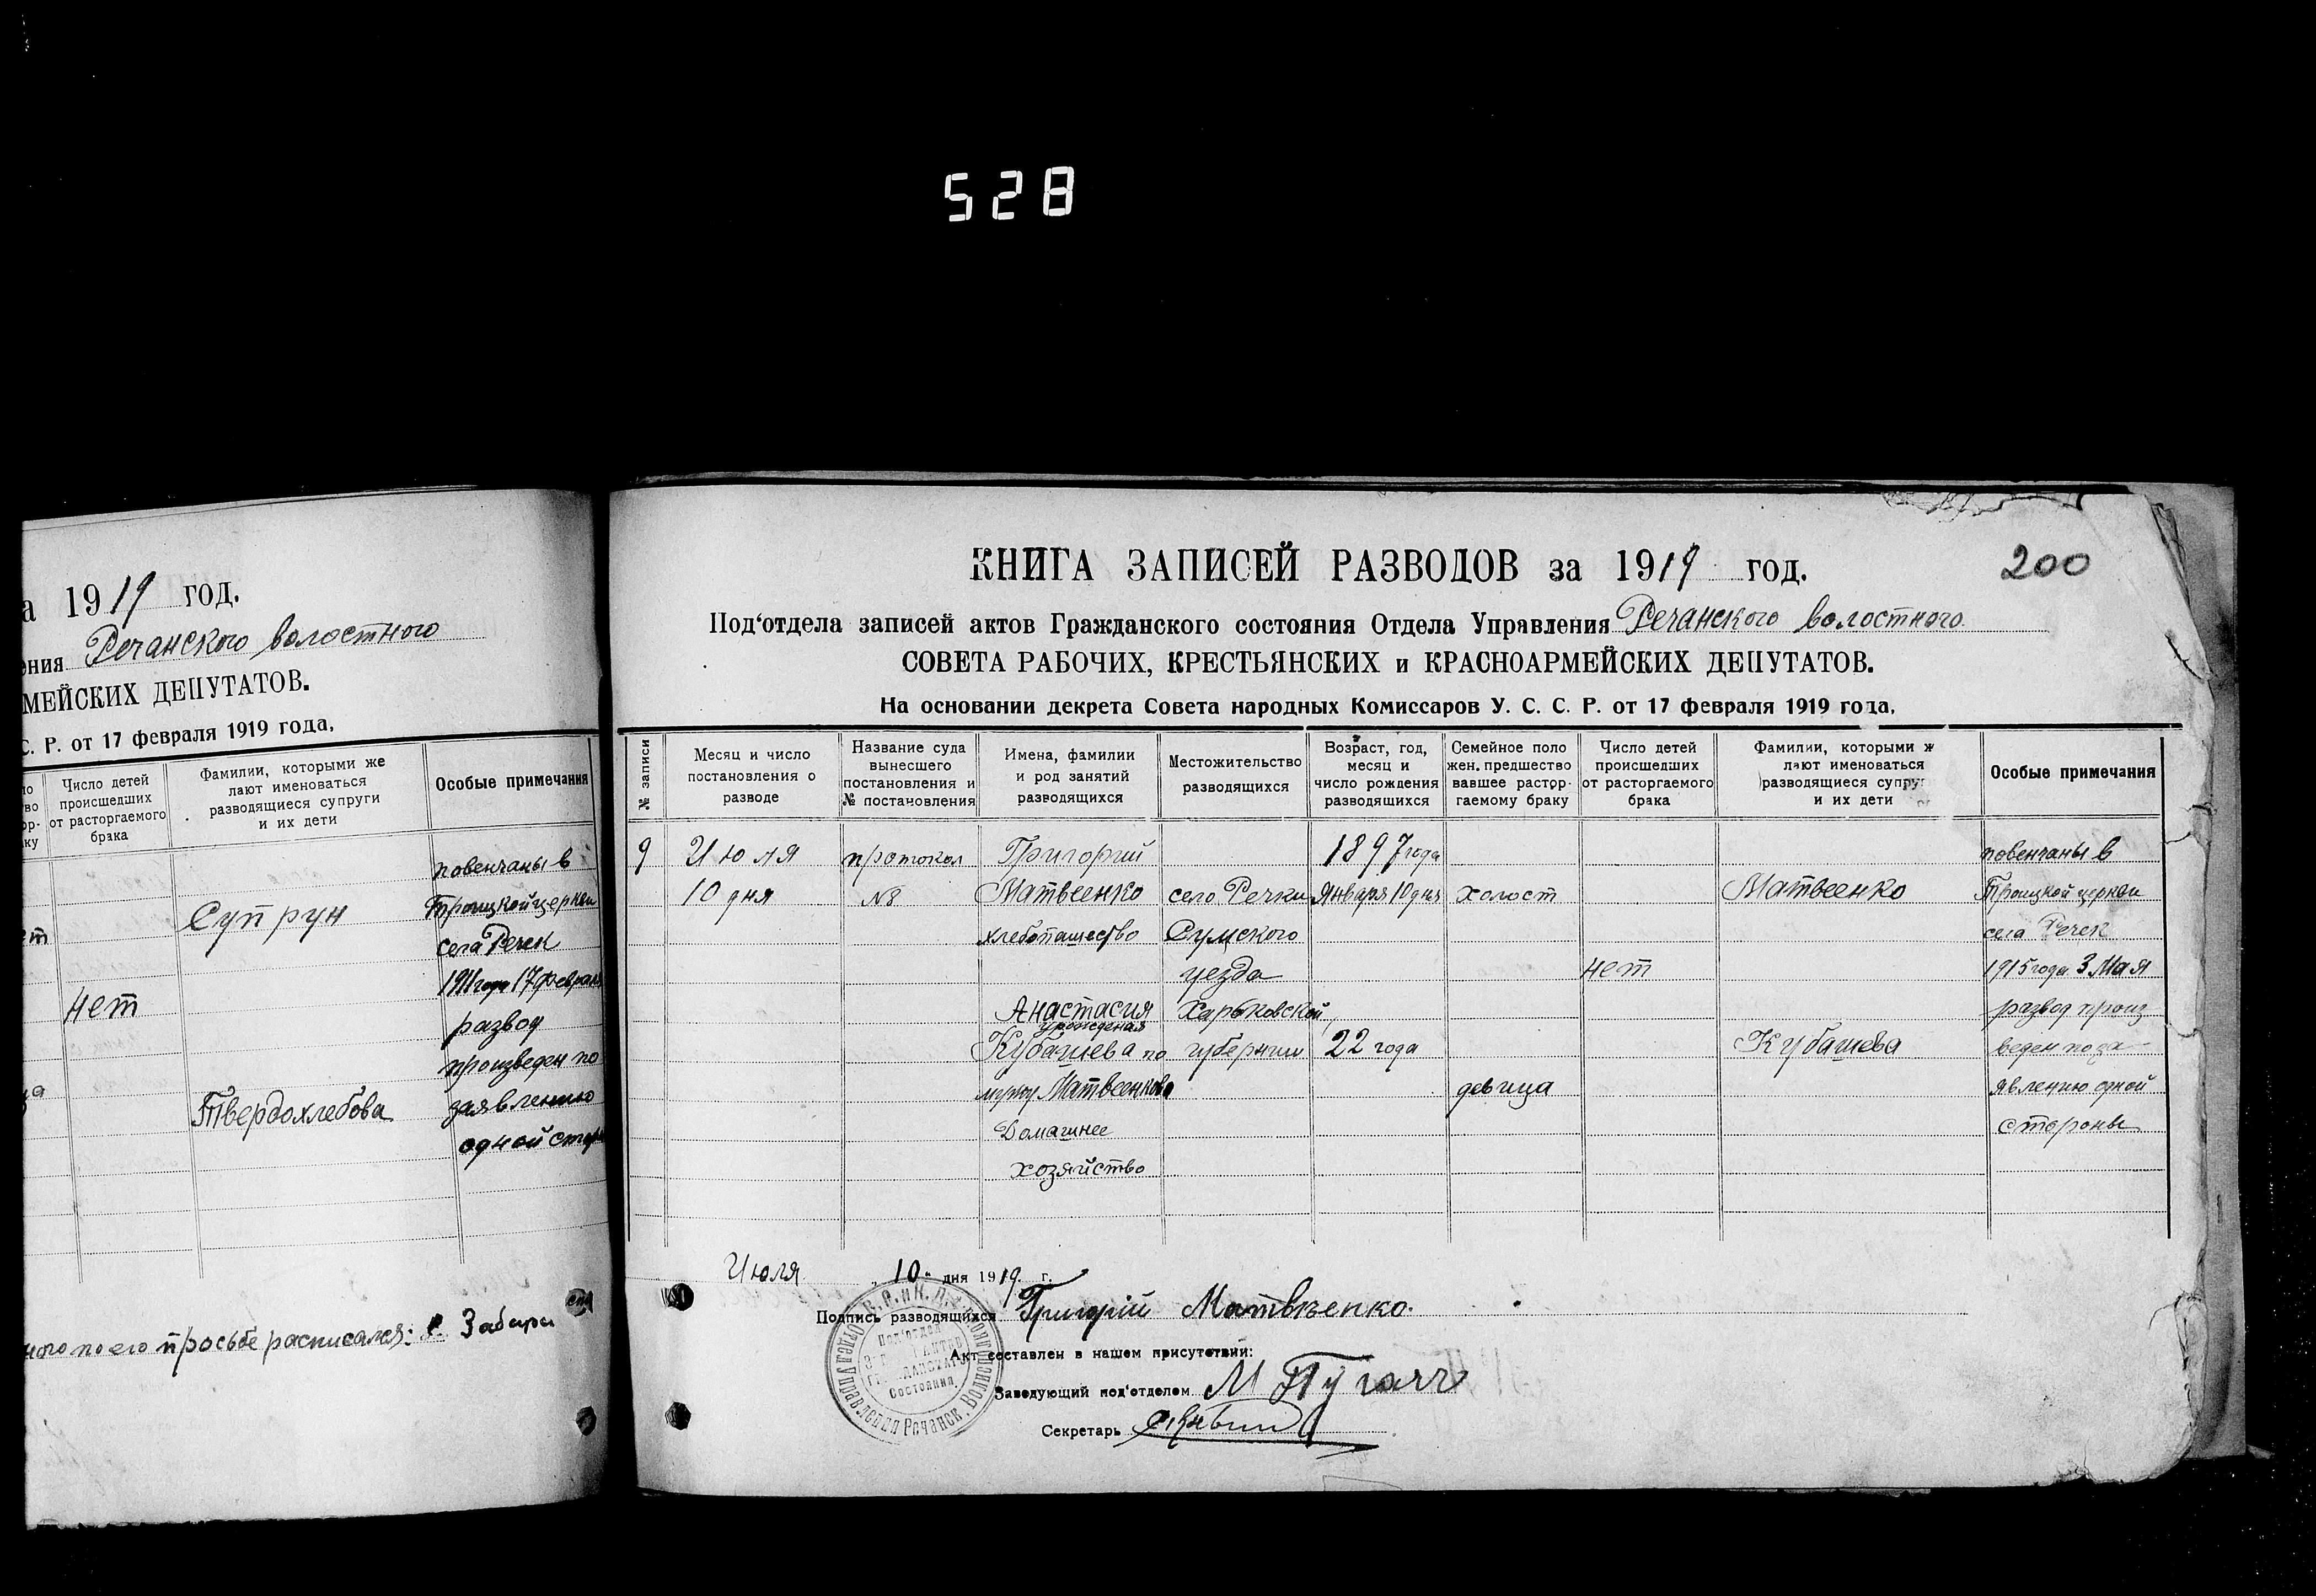 528
а 1919 год.
ения Речанского волостного
МЕЙСКИХ ДЕПУТАТОВ.
С. Р. от 17 февраля 1919 года,
Число детей
происшедших
от расторгаемого
брака
Фамилии, которыми же
лают именоваться
разводящиеся супруги
и их дети
Особые примечания
повенчаны в
Супрун
Троицкой церкви
села Речек
1911 года 17 февраля
нет
развод
произведен по
Твердохлебова
заявлению
одной стор
ного по его просьбе расписался:
200
КНИГА ЗАПИСЕЙ РАЗВОДОВ за 1919 год.
Под‘отдела записей актов Гражданского состояния Отдела Управления Речанского волостного
СОВЕТА РАБОЧИХ, КРЕСТЬЯНСКИХ и КРАСНОАРМЕЙСКИХ ДЕПУТАТОВ.
На основании декрета Совета народных Комиссаров У. С. С. Р. от 17 февраля 1919 года,
№ записи
Месяц и число
постановления о
разводе
Название суда
вынесшего
постановления и
№ постановления
Имена, фамилии
и род занятий
разводящихся
Местожительство
разводящихся
Возраст, год,
месяц и
число рождения
разводящихся
Семейное поло
жен. предшество
вавшее растор-
гаемому браку
Число детей
происшедших
от расторгаемого
брака
Фамилии, которыми ж
лают именоваться
разводящиеся супруг
и их дети
Особые примечания
9 Июля протокол Григорий 1897 года повенчаны в
10 дня №8 Матвеенко село Речки Января 10 дня холост Матвеенко Троицкой церкви
хлебопашество Сумского села Речек
уезда нет 1915 года 3 Мая
Анастасия Харьковской развод произ
урожденая
Кубашева по губернии 22 года Кубашева веден по за-
мужу Матвеенкова девица явлению одной
Домашнее стороны
хозяйство
Июля 10 дня 1919 г.
Подпись разводящихся Григорій Матвѣенко.
Акт составлен в нашем присутствии:
Заведующий под‘отделом М Пугач
Секретарь